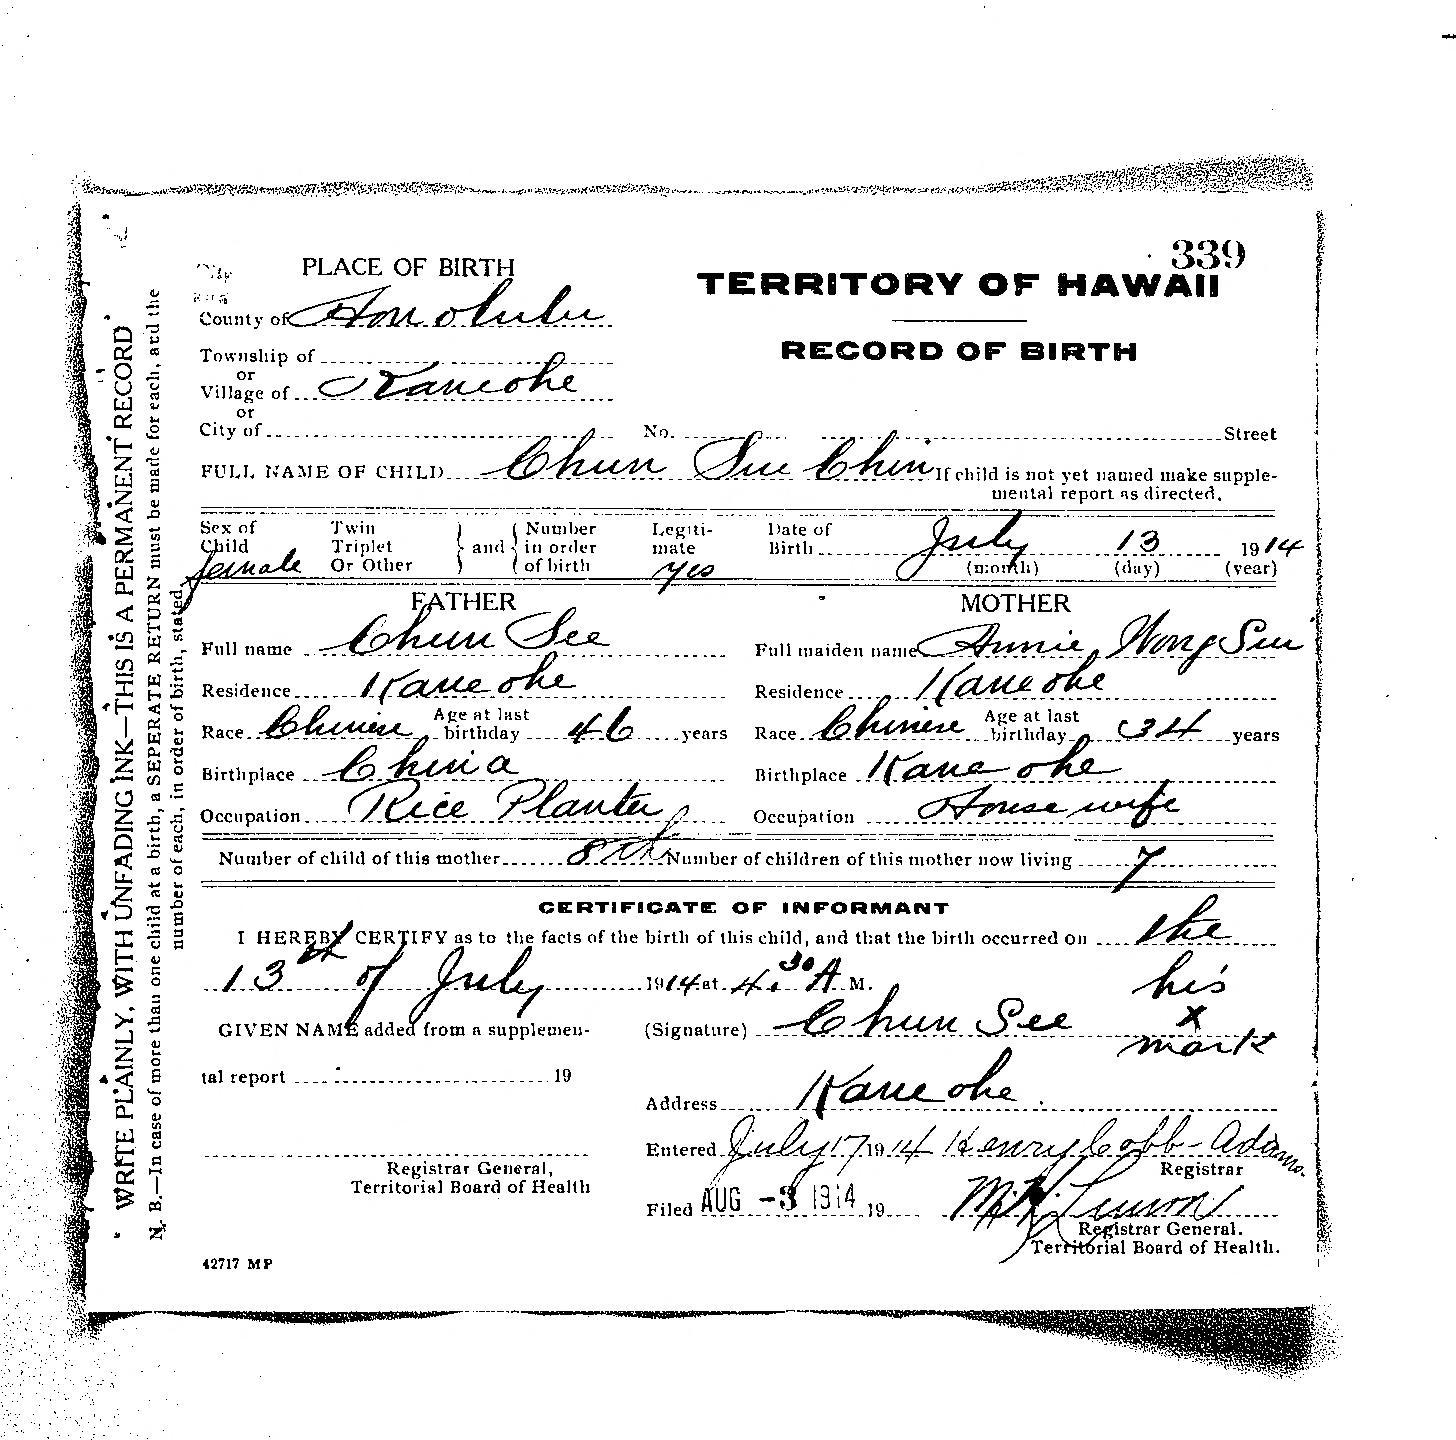 339
City
and
PLACE OF BIRTH
TERRITORY OF HAWAII
County of Honolulu
RECORD OF BIRTH
Township of
or
Village of Kaneohe
or
City of No. Street
FULL NAME OF CHILD Chun Sue Chin If child is not yet named make supple-
mental report as directed.
Sex of Child female Twin Triplet Or Other } and { Number in order of birth Legiti-mate yes Date of Birth July 13 1914
(month) (day) (year)
FATHER MOTHER
Full name Chun See Full maiden name Annie Wong Sui
Residence Kaneohe Residence Kaneohe
Race Chinese Age at last birthday 46 years Race Chinese Age at last birthday 34 years
Birthplace China Birthplace Kaneohe
Occupation Rice Planter Occupation Housewife
Number of child of this mother 8th Number of children of this mother now living 7
CERTIFICATE OF INFORMANT
I HEREBY CERTIFY as to the facts of the birth of this child, and that the birth occurred on the
13th of July 1914 at 4.30 A M.
his
GIVEN NAME added from a supplemen- (Signature) Chun See x
mark
tal report 19
Address Kaneohe
Entered July 17 1914 Henry Cobb-Adams
Registrar General, Registrar
Territorial Board of Health
Filed AUG -3 1914 19
Registrar General.
Territorial Board of Health.
42717 MP
WRITE PLAINLY, WITH UNFADING INK—THIS IS A PERMANENT RECORD
N. B.—In case of more than one child at a birth, a SEPERATE RETURN must be made for each, and the
number of each, in order of birth, stated